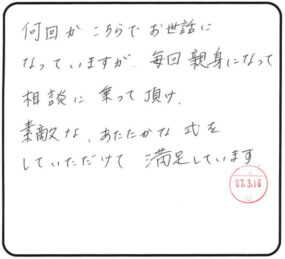 何回か こちらで お世話に
なっていますが、毎回 親身になって
相談に 乗って 頂け、
素敵な、あたたかな 式を
していただけて 満足しています
07.3.18